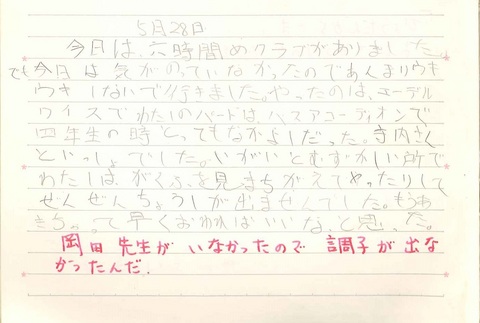 5月28日
今日は、六時間めクラブがありました。
でも今日は気がのっていなかったのであんまりウキ
ウキしないで行きました。やったのは、エーデル
ワイスでわたしのパートは、バスアコーディオンで
四年生の時とってもなかよしだった。寺内さん
といっしょでした。いがいとむずかしい所で
わたしは、がくふを見まちがえてやったりして
ぜんぜんちょうしが出ませんでした。もうあ
きちゃって早くおわればいいな、と思った。
岡田先生がいなかったので調子が出な
かったんだ.